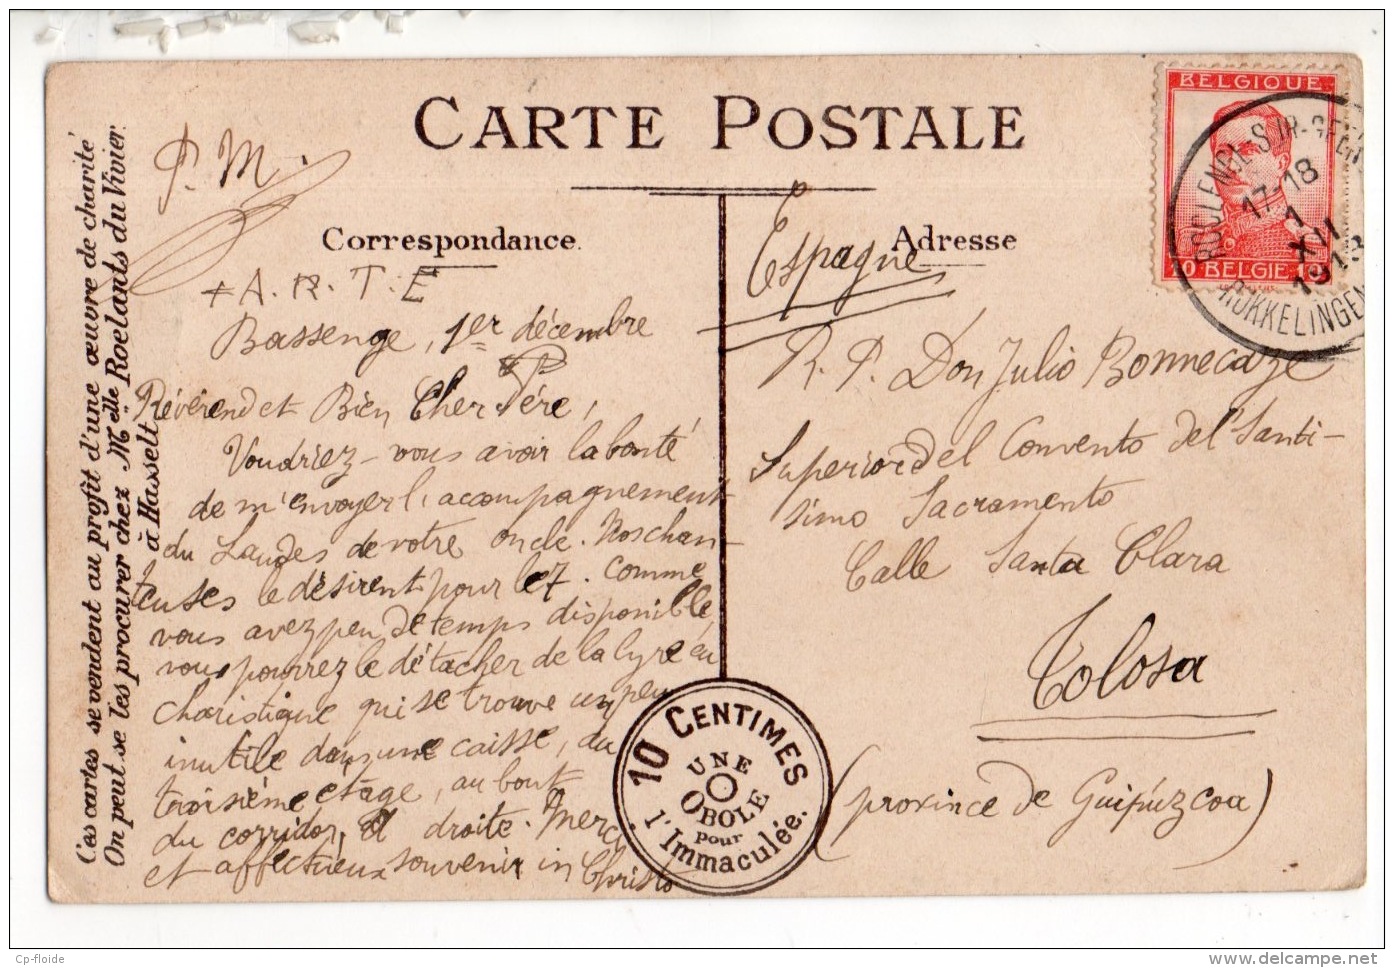 CARTE POSTALE
Correspondance.
Adresse
P. M.
+ A. R. T. E
Bassenge, 1er décembre
Révérend et Bien Cher Père,
Voudriez-vous avoir la bonté
de m'envoyer l'accompagnement
du Laudes de votre oncle. Nos chan-
teuses le désirent pour le 7. Comme
vous avez peu de temps disponible,
vous pourrez le détacher de la lyre eu
charistique qui se trouve un peu
inutile dans une caisse, au
troisième étage, au bout
du corridor, à droite. Merci
et affectueux souvenir in Christo
Espagne
R. P. Don Julio Bonnecaze
Superior del Convento del Santi-
simo Sacramento
Calle Santa Clara
Tolosa
(province de Guipúzcoa)
BELGIQUE
10 BELGIE 10
ROCLENGE-SUR-GEER
17-18
1
XII
1913
RUKKELINGEN
10 CENTIMES
UNE
OBOLE
pour
l'Immaculée.
Ces cartes se vendent au profit d'une œuvre de charité
On peut se les procurer chez Melle Roelants du Vivier
à Hasselt
Cp-floide
delcampe.net